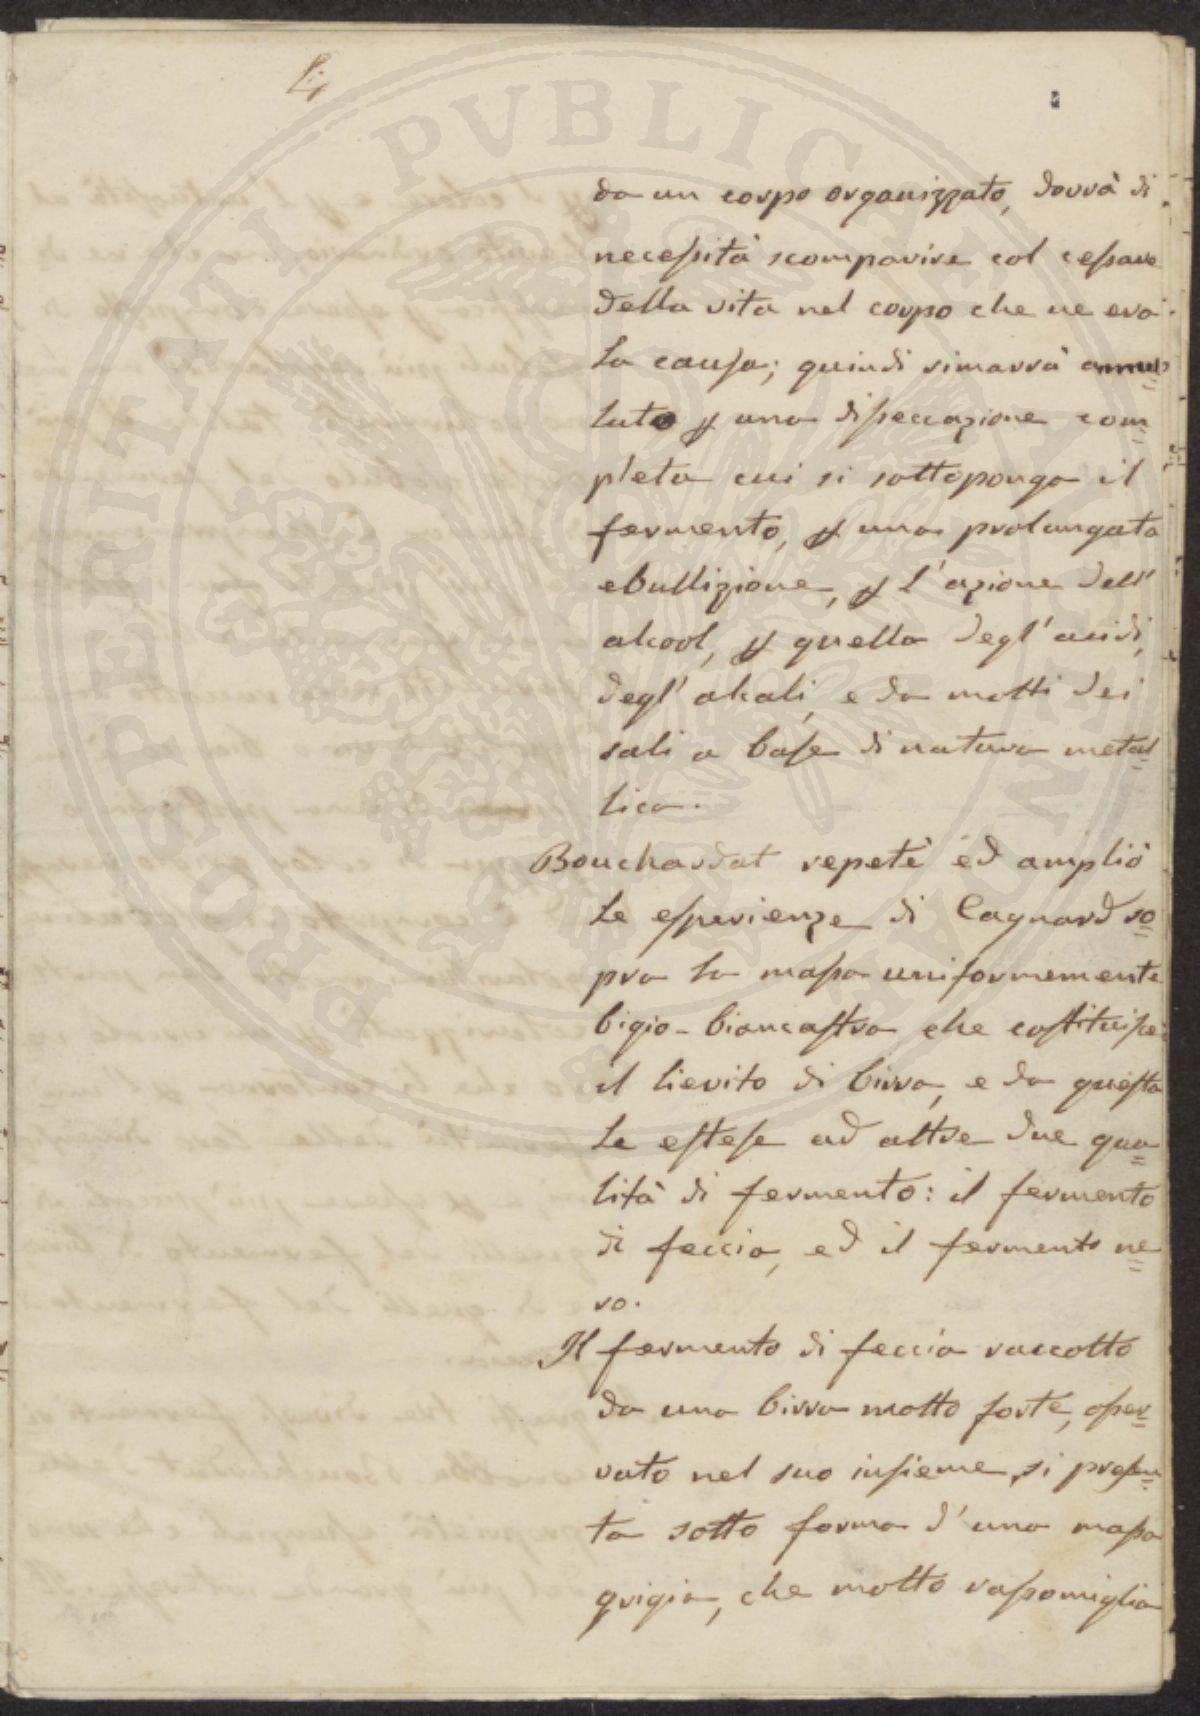 PROSPERITATI PVBLICAE AVGENDAE
da un corpo organizzato, dovrà di
necessità scomparire col cessare
della vita nel corpo che ne era
la causa; quindi rimarrà annul=
lato p una disseccazione com=
pleta cui si sottoponga il
fermento, p una prolungata
ebullizione, p l'azione dell'
alcool, p quella degl'acidi,
degl'alcali, e da molti dei
sali a base di natura metal=
lica.
Bouchardat repetè ed ampliò
le esperienze di Cagnard so=
pra la massa uniformemente
bigio-biancastra che costituisce
il lievito di birra, e da questa
le estese ad altre due qua=
lità di fermento: il fermento
di feccia, ed il fermento ne=
ro.
Il fermento di feccia raccolto
da una birra molto forte, osser=
vato nel suo insieme, si presen=
ta sotto forma d'una massa
grigia, che molto rassomiglia